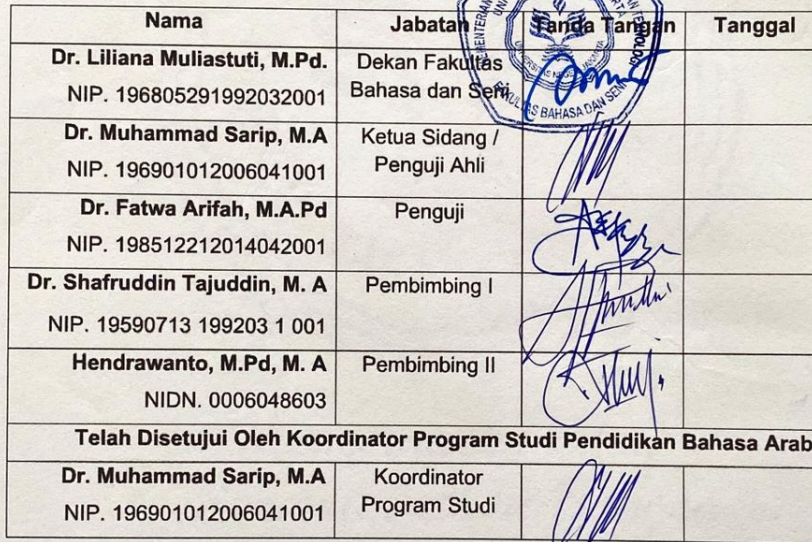 Nama Jabatan Tanda Tangan Tanggal
Dr. Liliana Muliastuti, M.Pd.
NIP. 196805291992032001
Dekan Fakultas
Bahasa dan Seni
FAKULTAS BAHASA DAN SENI
Dr. Muhammad Sarip, M.A
NIP. 196901012006041001
Ketua Sidang /
Penguji Ahli
Dr. Fatwa Arifah, M.A.Pd
NIP. 198512212014042001
Penguji
Dr. Shafruddin Tajuddin, M. A
NIP. 19590713 199203 1 001
Pembimbing I
Hendrawanto, M.Pd, M. A
NIDN. 0006048603
Pembimbing II
Telah Disetujui Oleh Koordinator Program Studi Pendidikan Bahasa Arab
Dr. Muhammad Sarip, M.A
NIP. 196901012006041001
Koordinator
Program Studi